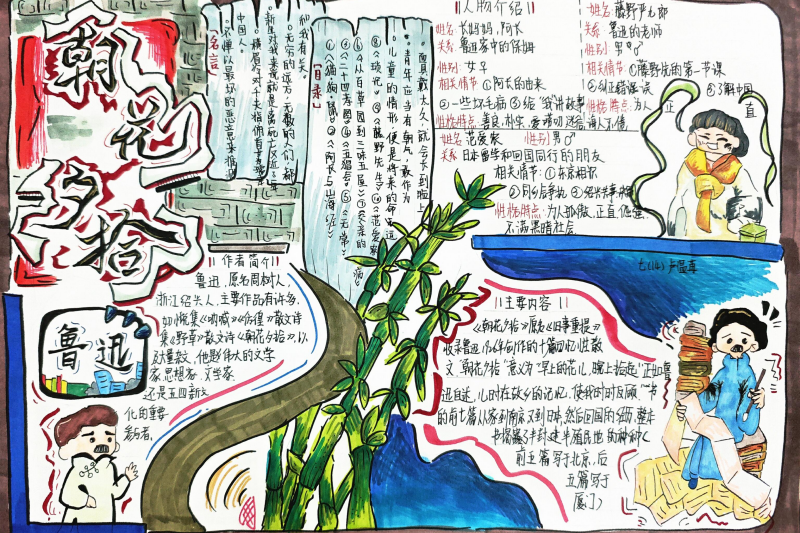 朝花夕拾
【名言】
不惮以最坏的恶意来推测
中国人。
横眉冷对千夫指俯首甘为孺子牛
无穷的远方，无数的人们，都
和我有关。
【目录】
①《狗·猫·鼠》②《阿长与山海经》
③《二十四孝图》④《五猖会》⑤《无常》
⑥《从百草园到三味书屋》⑦《父亲的病》
⑧《琐记》⑨《藤野先生》⑩《范爱农》
儿童的情形，便是将来的命运
青年应当有朝气，敢作为
面具戴太久，就会长到脸上
||人物介绍||
姓名:长妈妈，阿长
关系:鲁迅家中的保姆
性别:女♀
相关情节:①阿长的由来
②一些好毛病③给“我”讲故事
性格特点:善良、朴实
姓名:藤野严九郎
关系:鲁迅的老师
性别:男♂
相关情节:①藤野先生的第一节课
②纠正错误
③了解中国
性格特点:为人
正直
姓名:范爱农
性别:男♂
关系:日本留学和回国同行的朋友
相关情节:①东京相识
性格特点:为人孤傲、正直、倔强
不满黑暗社会
||作者简介||
鲁迅，原名周树人，
浙江绍兴人，主要作品有许多，
如小说集《呐喊》《彷徨》散文诗
集《野草》散文《朝花夕拾》，以
及大量杂文，他影伟大的文学
家思想家、文学家
还是五四新文
化的重要
参与者，
鲁迅
七(14)
||主要内容||
《朝花夕拾》原名《旧事重提》
收录鲁迅1926年创作的十篇回忆性散
文，“朝花夕拾”意义为“早上的花儿，晚上拾起”正如鲁
迅自述，儿时在故乡的记忆，使我时时反顾，一书
的前七篇从家到南京又到日本，然后回国的经历，整本
书揭露了半封建半殖民地的种种(
前五篇写于北京，后
五篇写于
厦门)